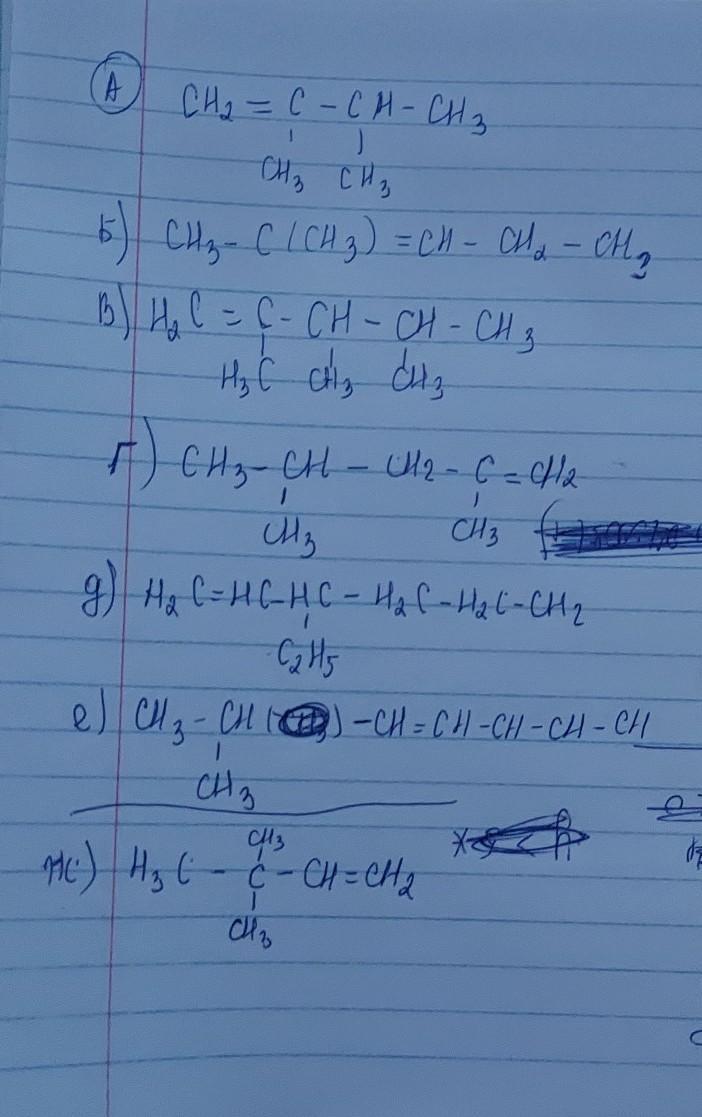 А CH₂ = C – CH – CH₃
CH₃ CH₃
Б) CH₃ – C(CH₃) = CH – CH₂ – CH₃
В) H₂C = C – CH – CH – CH₃
H₃C CH₃ CH₃
Г) CH₃ – CH – CH₂ – C = CH₂
CH₃ CH₃
д) H₂C=HC–HC – H₂C – H₂C – CH₂
C₂H₅
е) CH₃ – CH ( ) – CH = CH – CH – CH – CH
CH₃
CH₃
ж) H₃C – C – CH = CH₂
CH₃